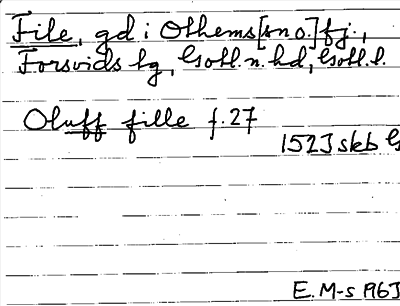 File, gd i Othems [sn o.] fj.,
Forsvids tg, Gotl. n. hd, Gotl. l.
Oluff fille f. 27
1523 skb G
E. M-s 1963